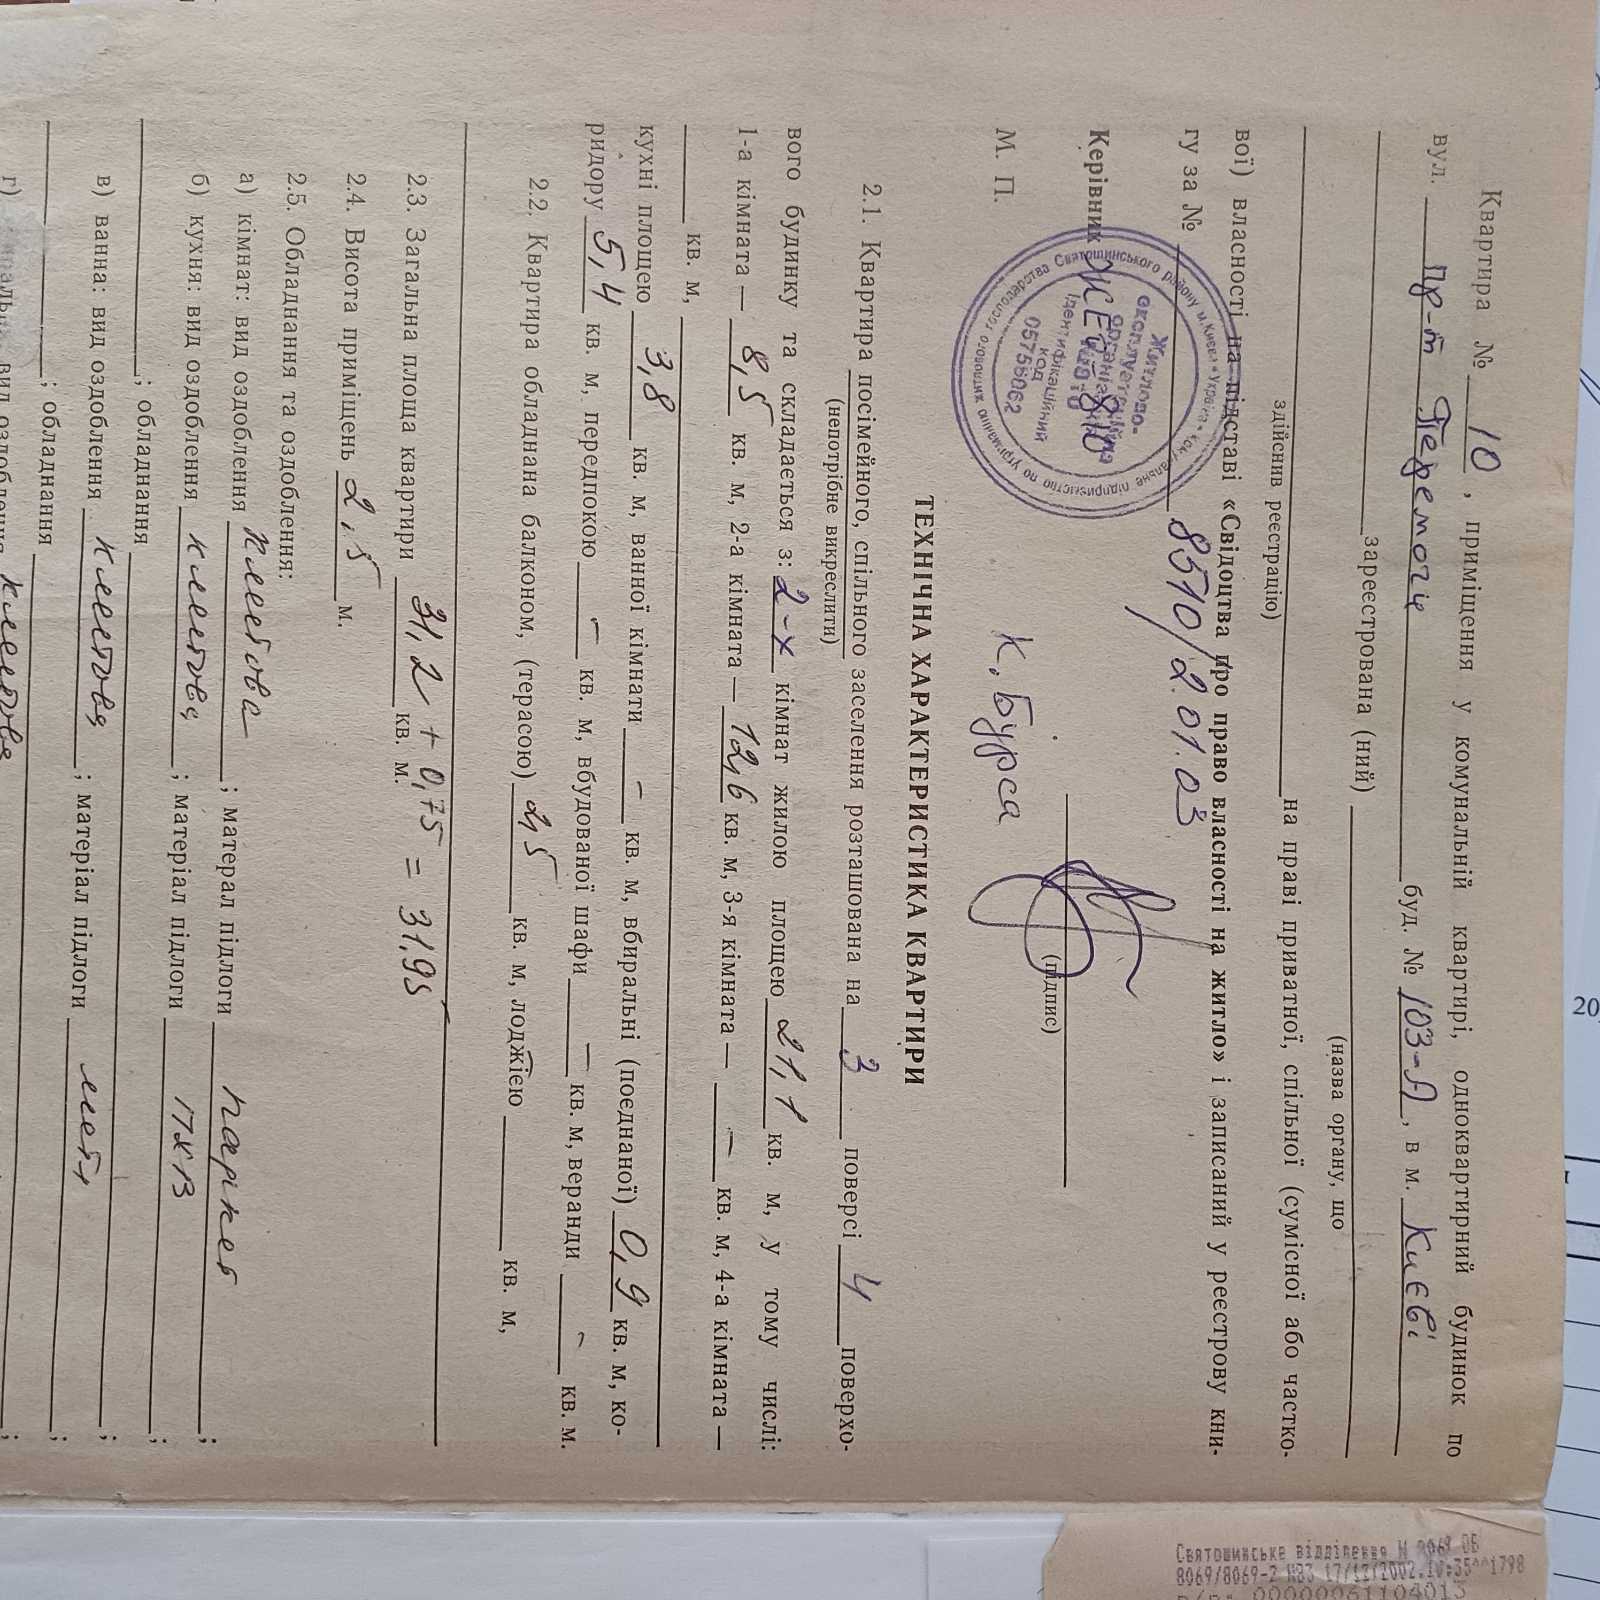 Квартира № 10, приміщення у комунальній квартирі, одноквартирний будинок по
вул. пр-т Перемоги буд. № 103-А, в м. Києві
зареєстрована (ний)
(назва органу, що
на праві приватної, спільної (сумісної або частко-
здійснив реєстрацію)
вої) власності на підставі «Свідоцтва про право власності на житло» і записаний у реєстрову кни-
гу за № 8510/2.01.03
Керівник ЖЕО-810
(підпис)
М. П. К. Бурса
Святошинського району м.Києва
Житлово-
експлуатаційна
організація
Ідентифікаційний
код
05756062
ТЕХНІЧНА ХАРАКТЕРИСТИКА КВАРТИРИ
2.1. Квартира посімейного, спільного заселення розташована на 3 поверсі 4 поверхо-
(непотрібне викреслити)
вого будинку та складається з: 2-х кімнат жилою площею 21,1 кв. м, у тому числі:
1-а кімната — 8,5 кв. м, 2-а кімната — 12,6 кв. м, 3-я кімната — – кв. м, 4-а кімната —
кв. м,
кухні площею 3,8 кв. м, ванної кімнати – кв. м, вбиральні (поєднаної) 0,9 кв. м, ко-
ридору 5,4 кв. м, передпокою – кв. м, вбудованої шафи – кв. м, веранди – кв. м.
2.2. Квартира обладнана балконом, (терасою) 2,5 кв. м, лоджією кв. м,
2.3. Загальна площа квартири 31,2 + 0,75 = 31,95 кв. м.
2.4. Висота приміщень 2,5 м.
2.5. Обладнання та оздоблення:
а) кімнат: вид оздоблення клейова; матерал підлоги паркет;
б) кухня: вид оздоблення клейова; матеріал підлоги ПХВ
; обладнання ;
в) ванна: вид оздоблення клейова; матеріал підлоги мет. ;
; обладнання ;
г) вид оздоблення клейова ;
20
Святошинське відділення N 8069 ОБ
8069/8069-2 НВЗ 17/12/2002.10:35^^1798
00000061104013